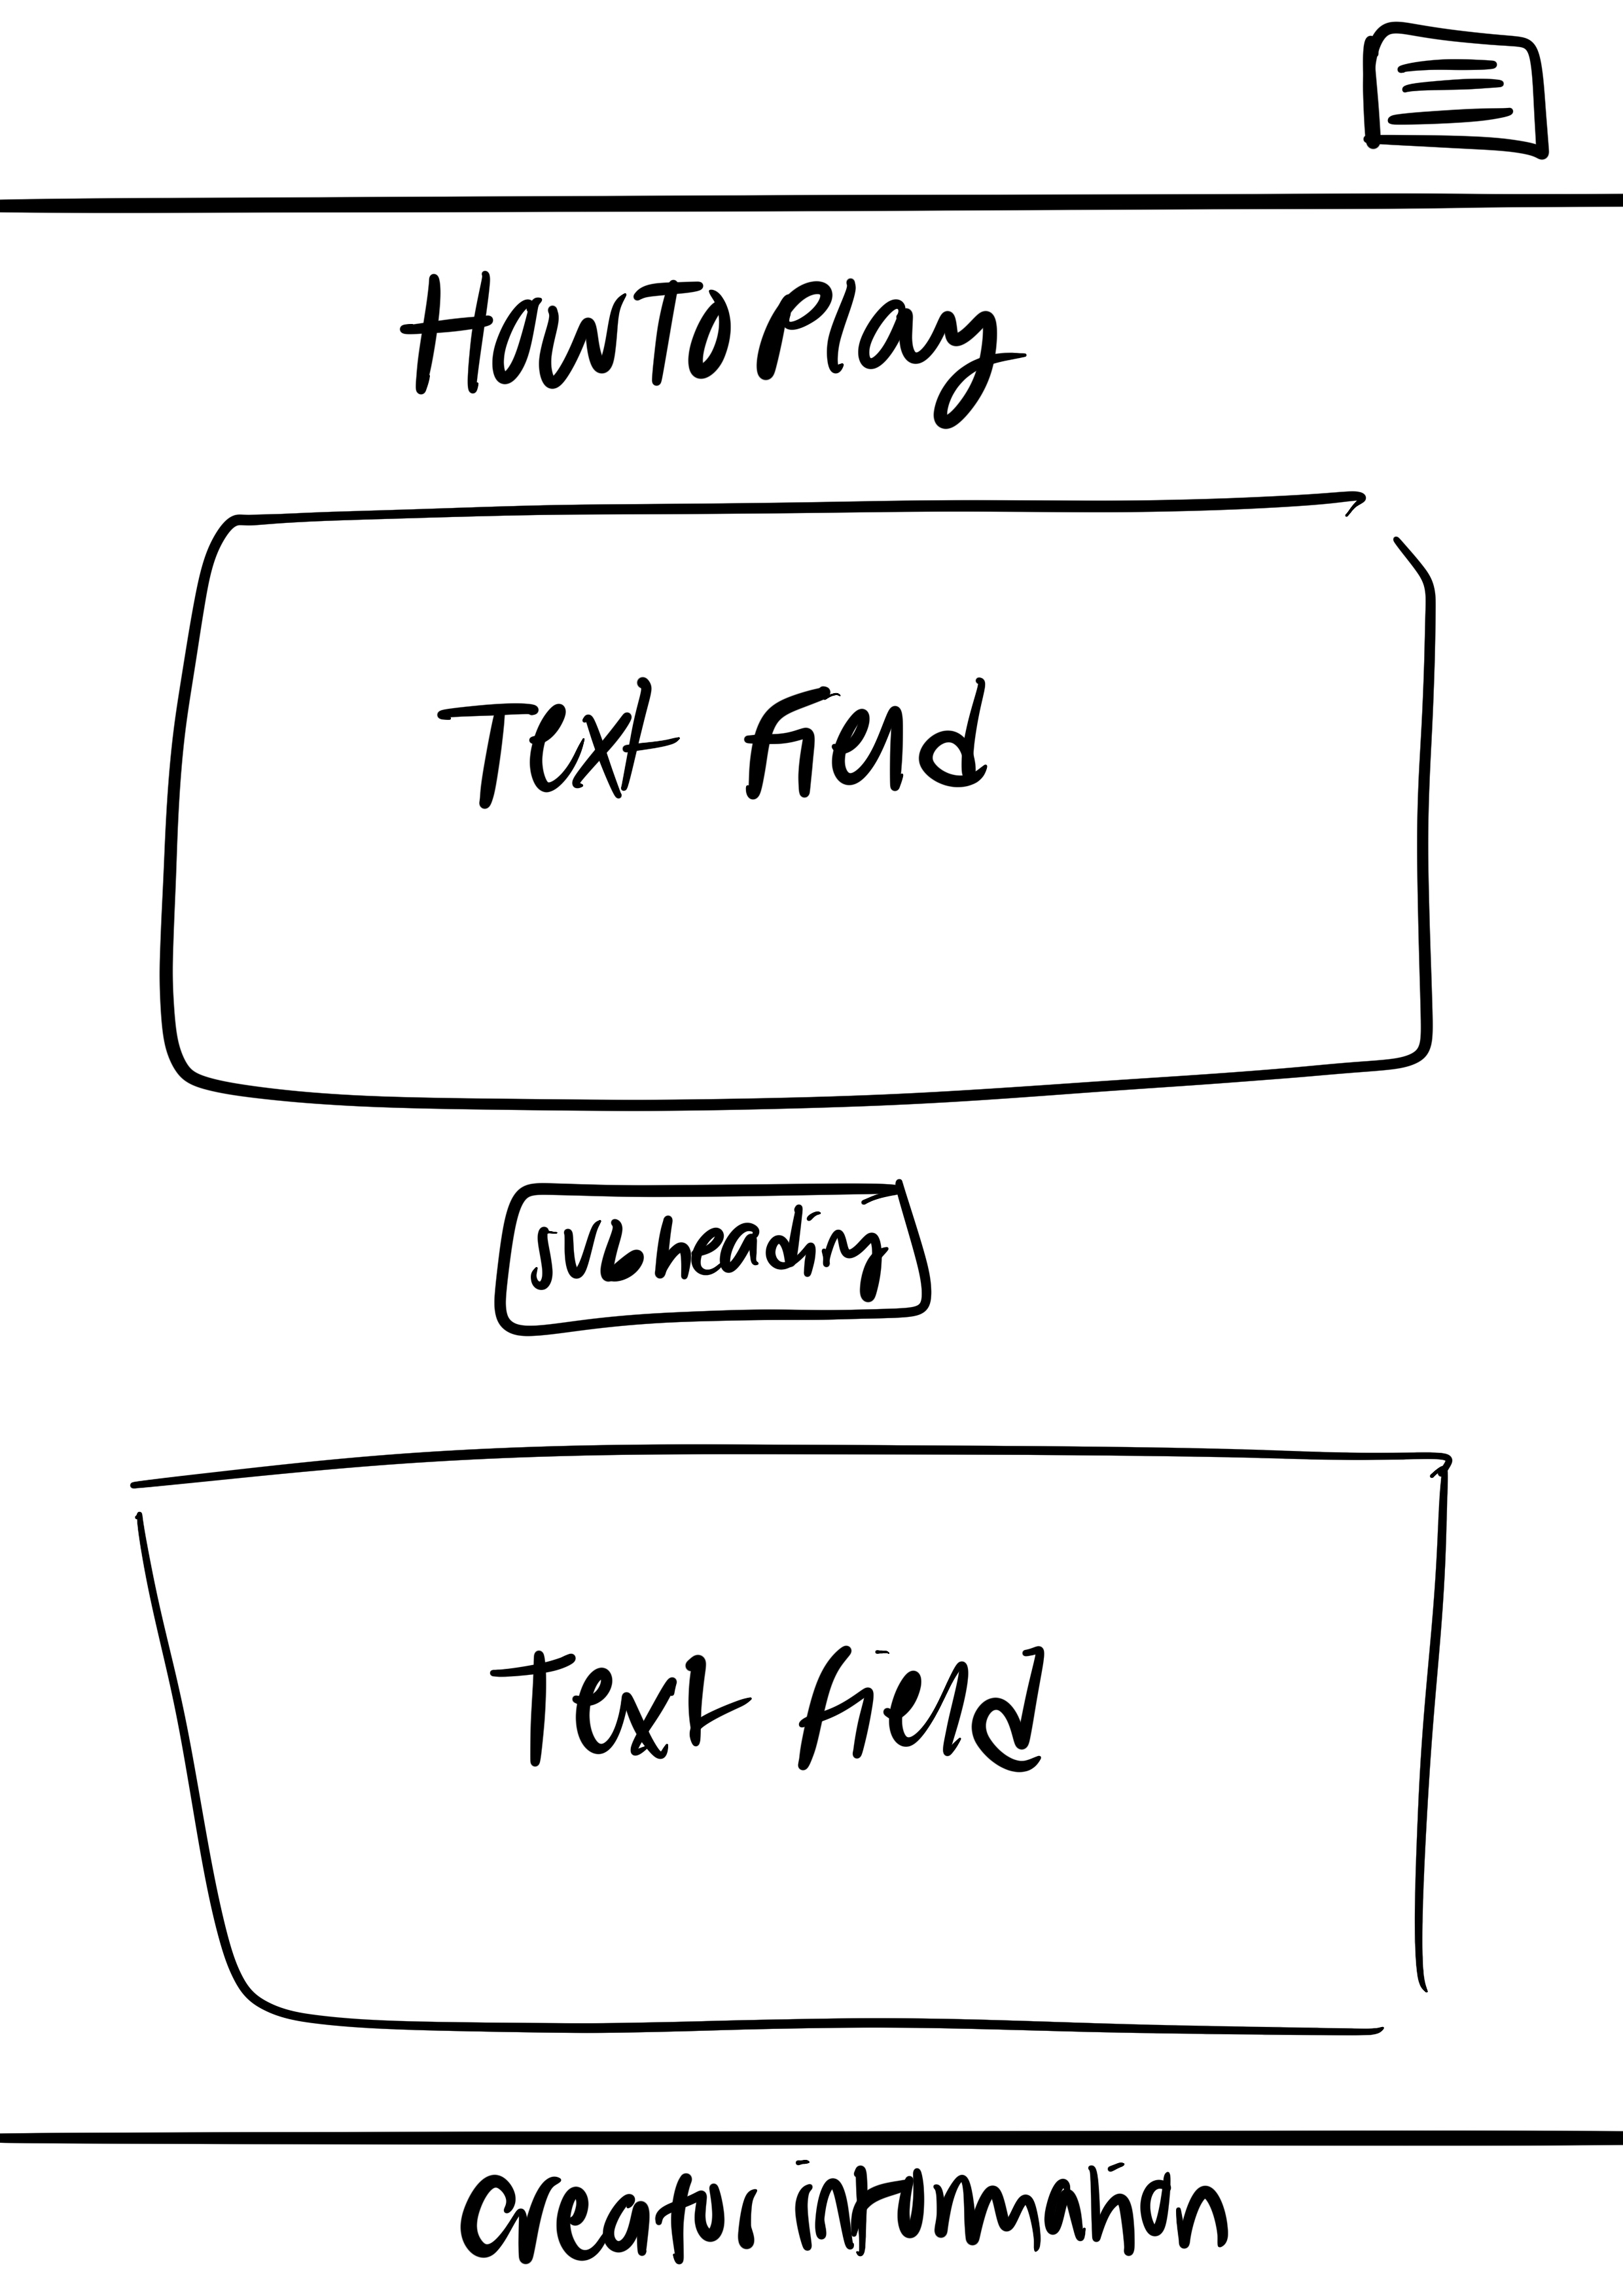 How To Play
Text field
Subheading
Text field
creator information